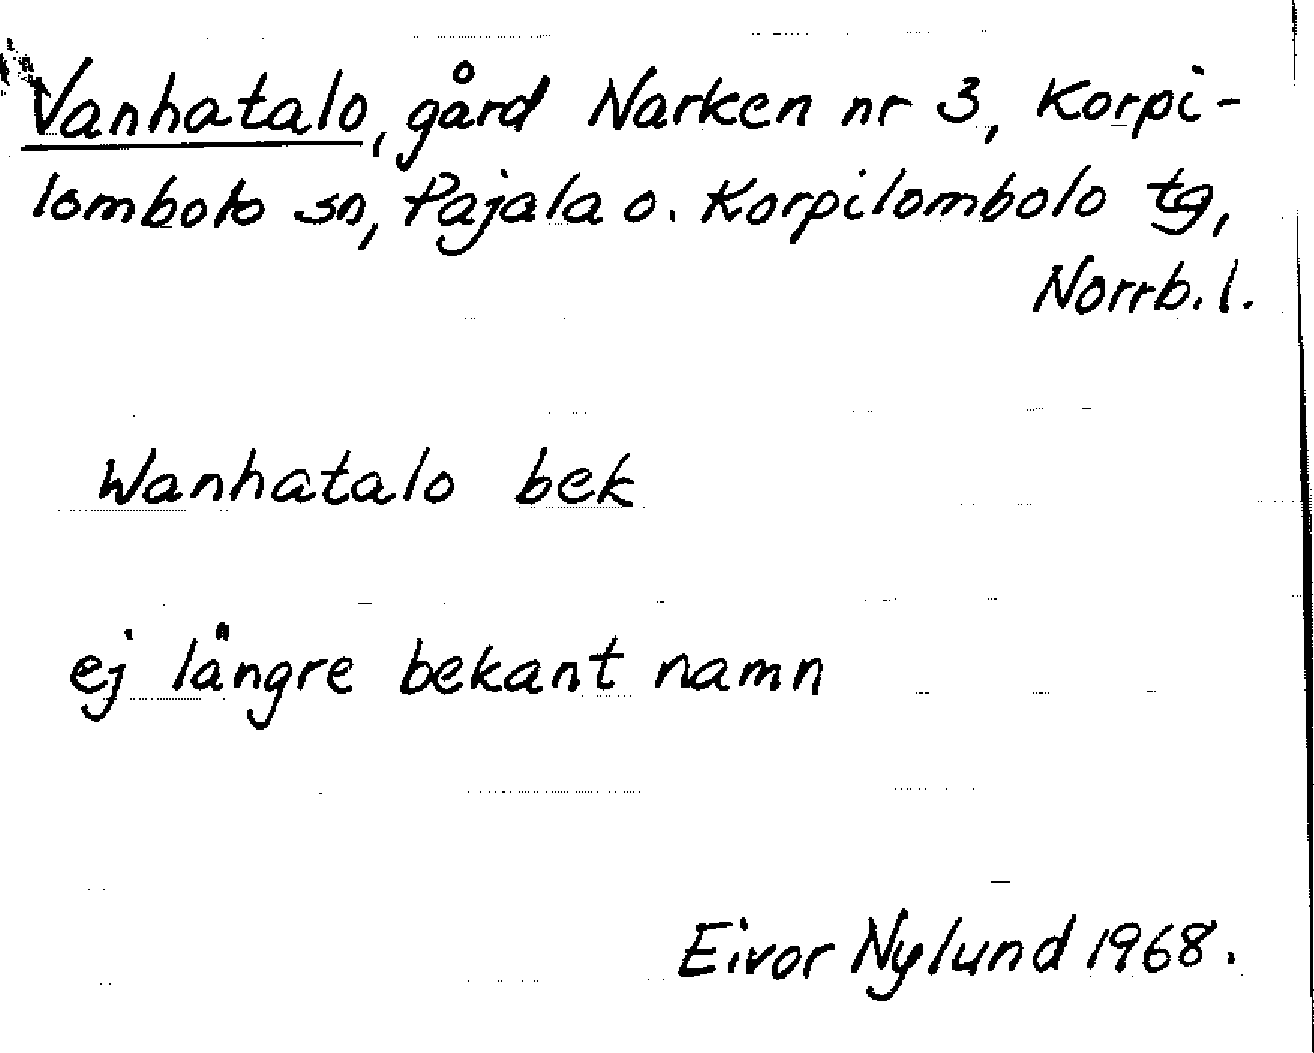 Vanhatalo, gård Narken nr 3, Korpi-
lombolo sn, Pajala o. Korpilombolo tg,
Norrb. l.
Wanhatalo bek
ej längre bekant namn
Eivor Nylund 1968.